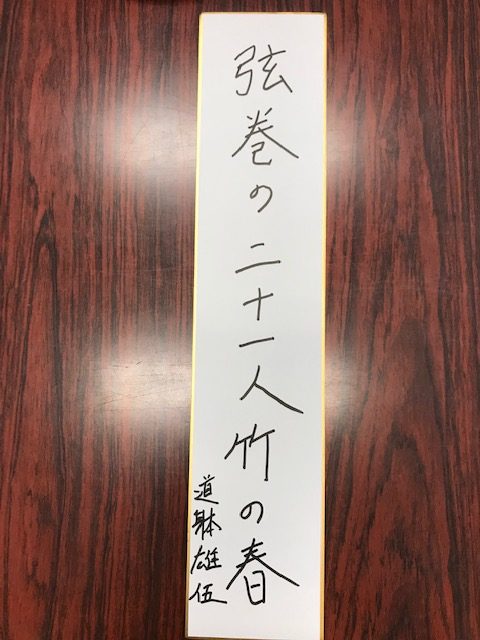 弦巻の二十一人竹の春
道躰雄伍